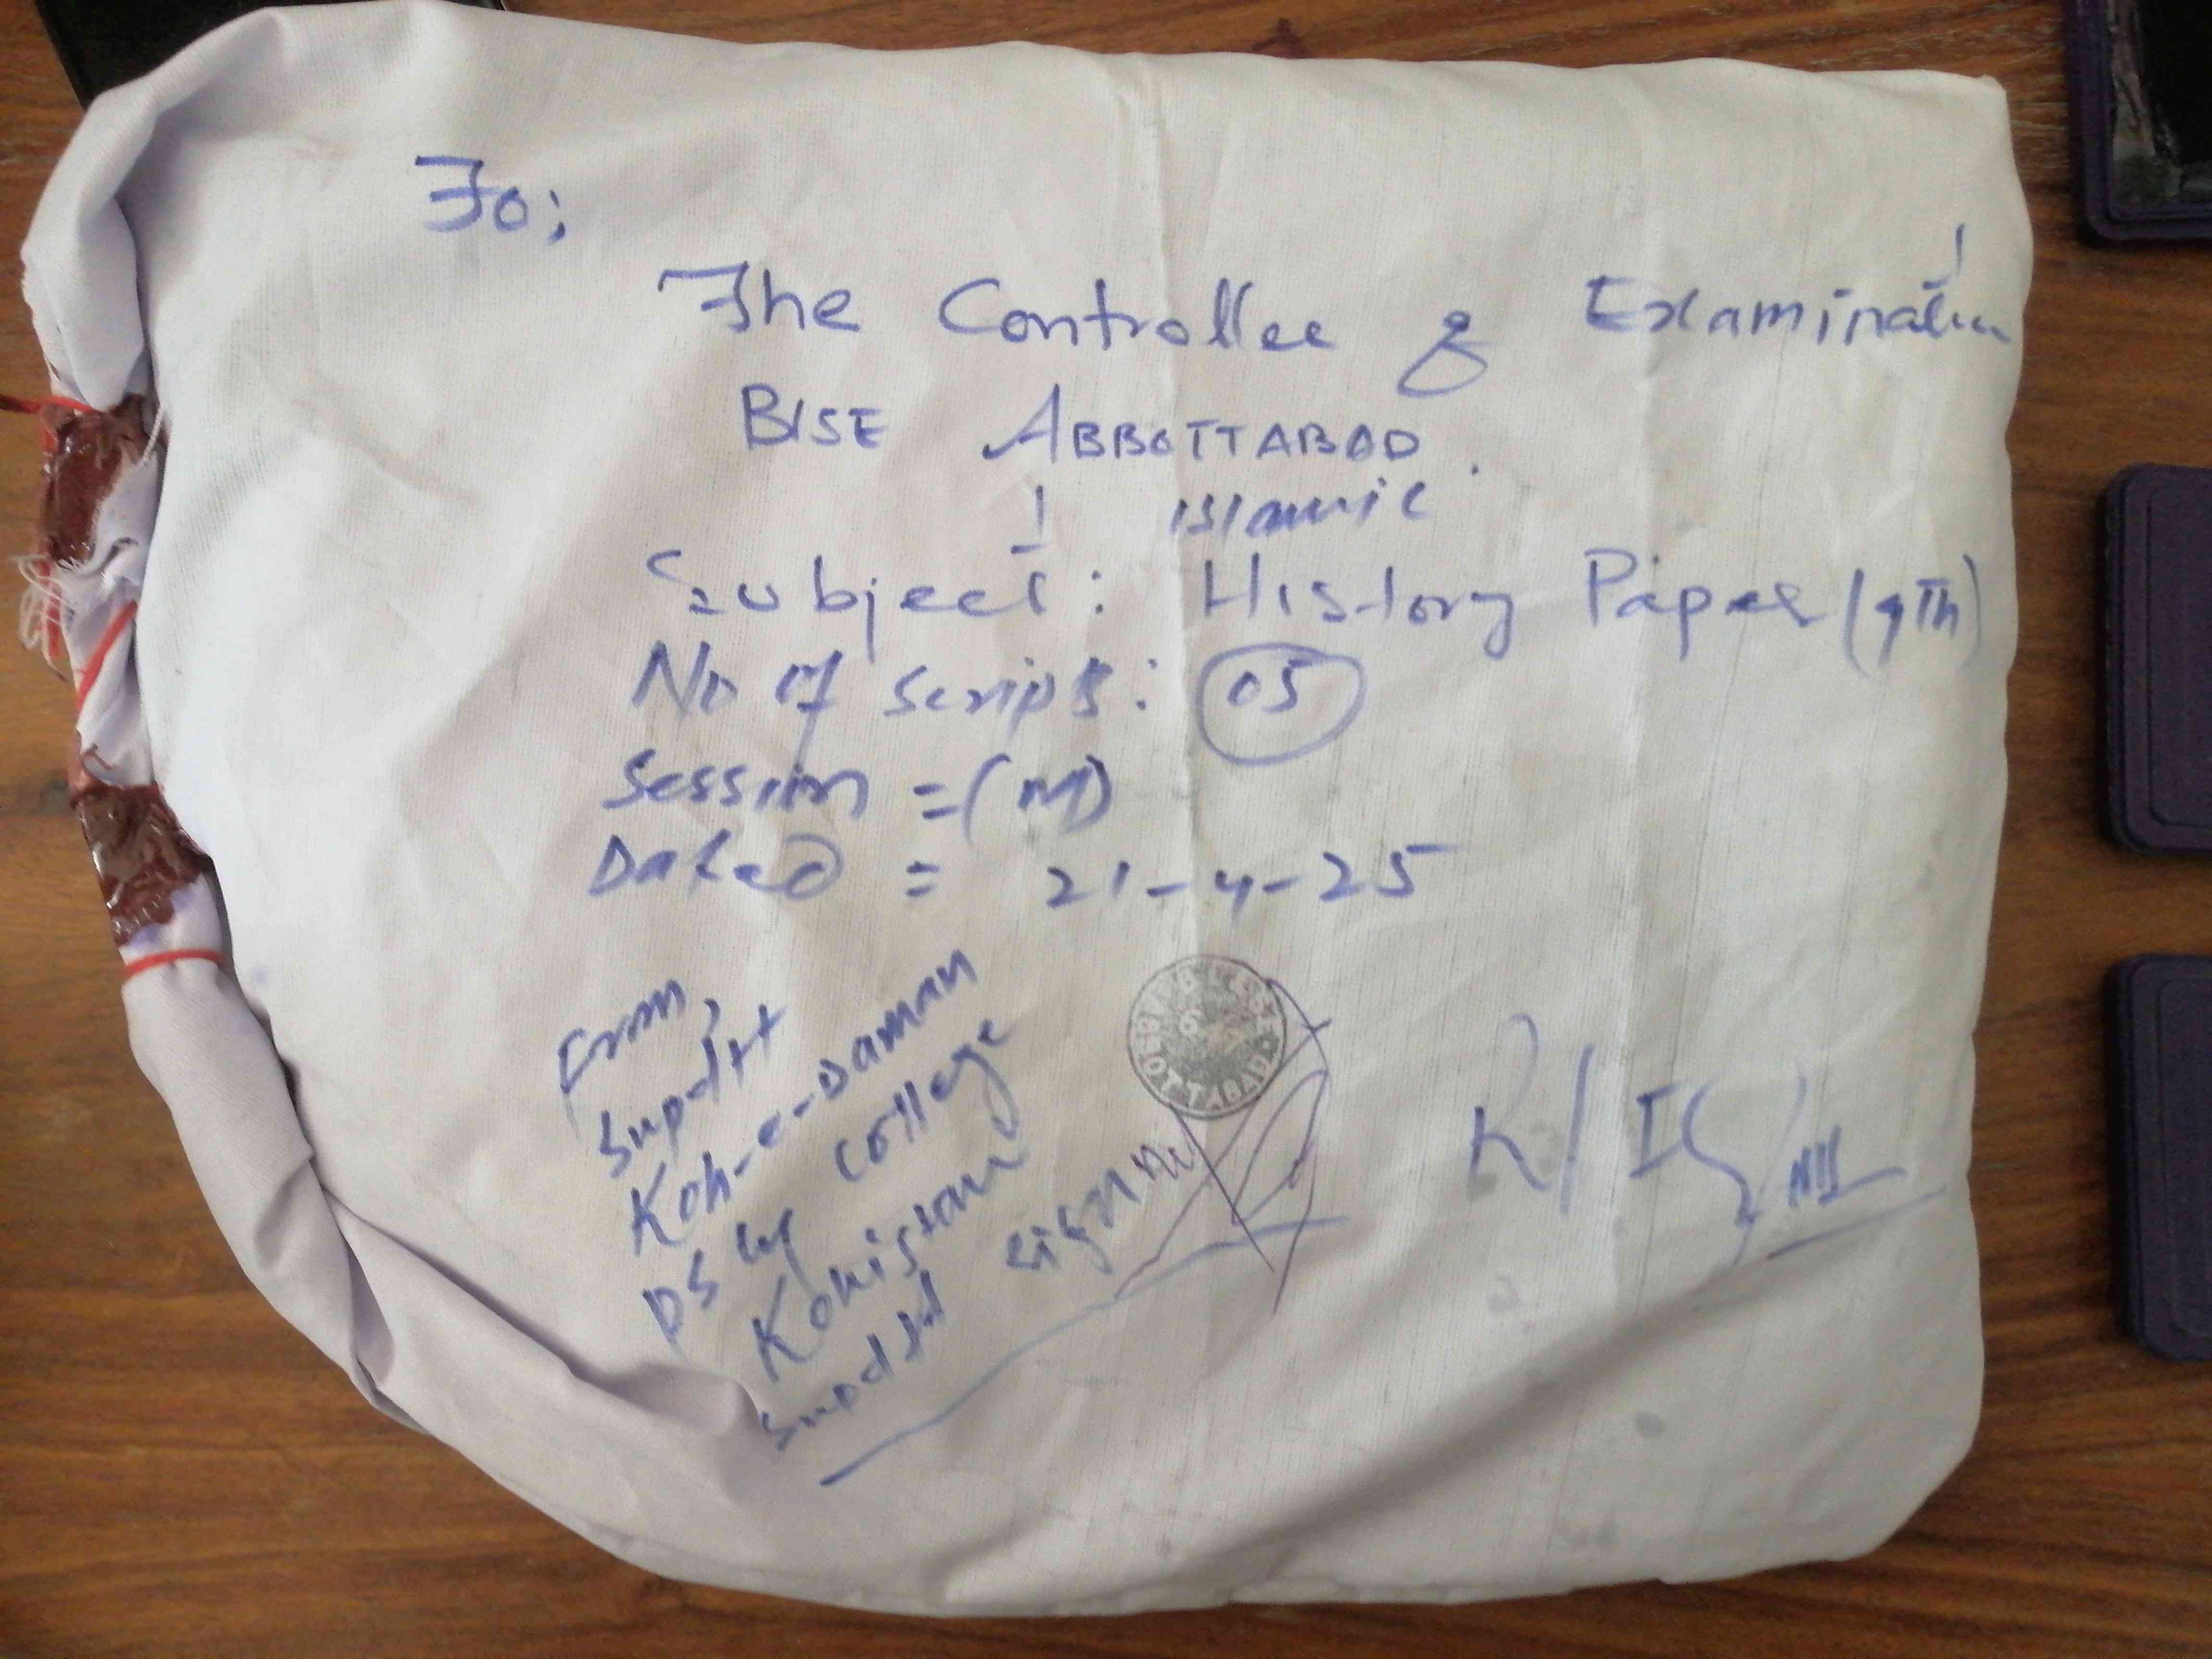 To;
The Controller of Examination
BISE ABBOTTABAD.
Islamic
Subject: History Paper (9Th)
No of scripts: 05
Session = (M)
Dated = 21-4-25
From,
Supdtt
Koh-e-Daman
PS College
Kohistan
Supdtt sign